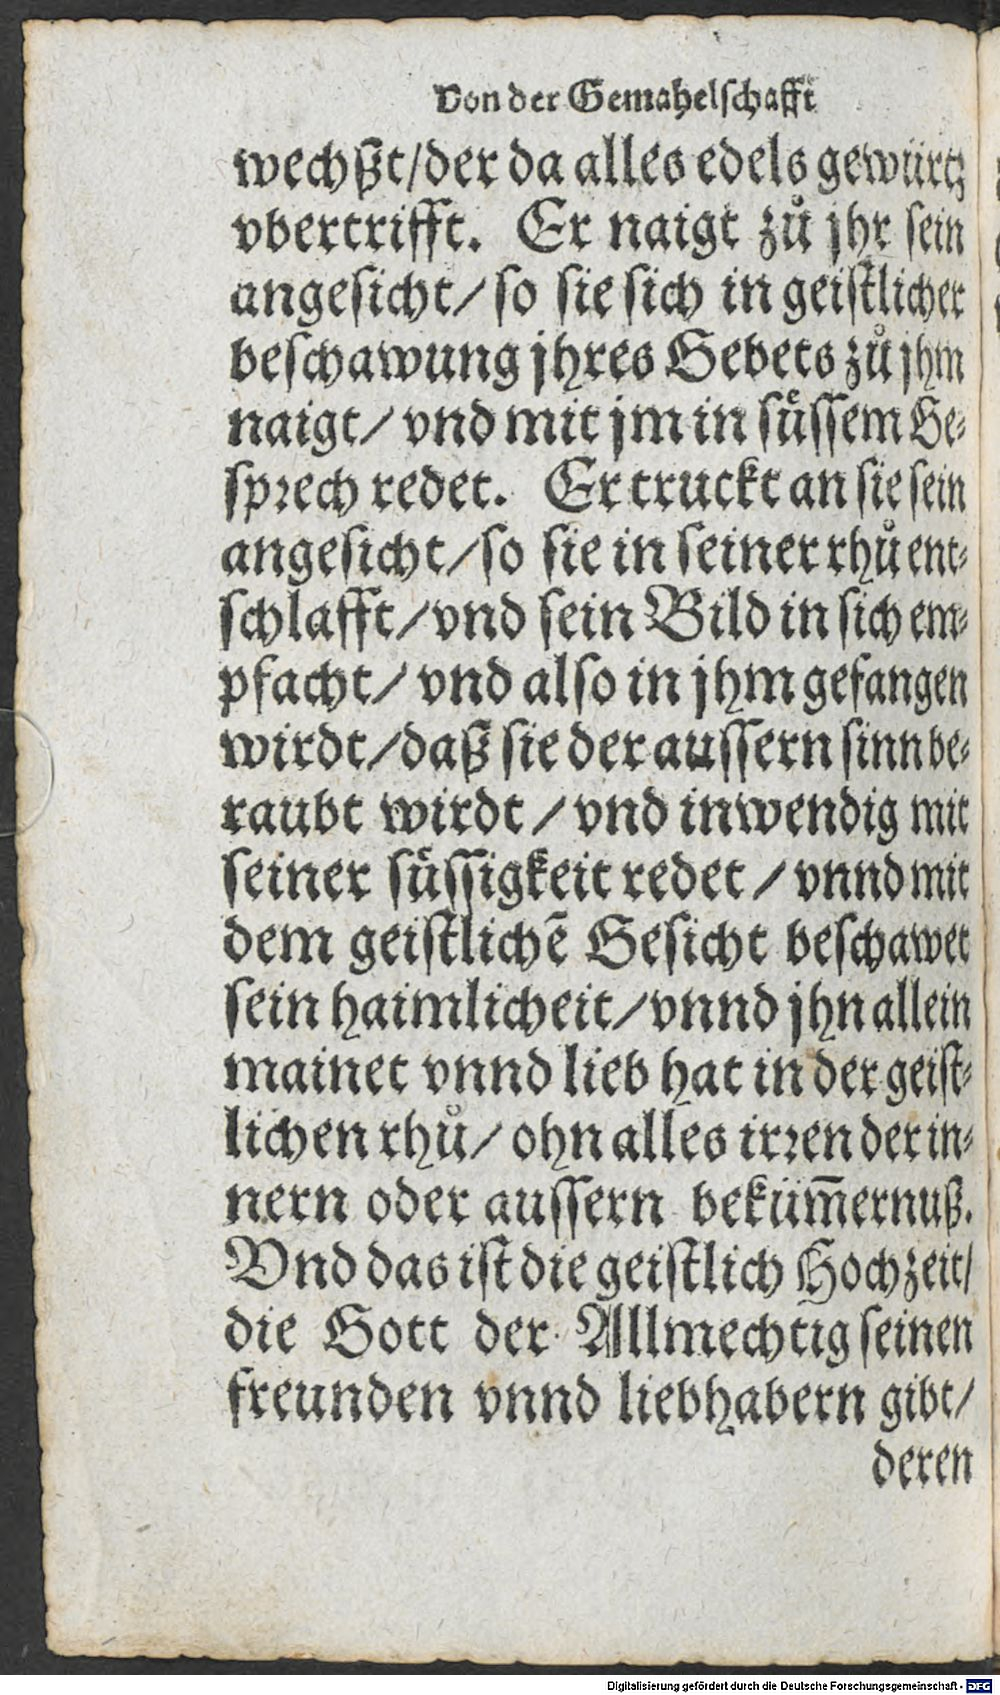 Von der Gemahelschafft
wechßt/der da alles edels gewürtz
vbertrifft. Er naigt zů jhr sein
angesicht/ so sie sich in geistlicher
beschawung jhres Gebets zů jhm
naigt/ vnd mit jm in sůssem Ge-
sprech redet. Er truckt an sie sein
angesicht/so sie in seiner rhů ent-
schlafft/vnd sein Bild in sich em-
pfacht/ vnd also in jhm gefangen
wirdt/daß sie der aussern sinn be-
raubt wirdt / vnd inwendig mit
seiner süssigkeit redet / vnnd mit
dem geistlichē Gesicht beschawet
sein haimlicheit/vnnd jhn allein
mainet vnnd lieb hat in der geist-
lichen rhů/ ohn alles irren der in-
nern oder aussern beküm̄ernuß.
Vnd das ist die geistlich Hochzeit/
die Gott der Allmechtig seinen
freunden vnnd liebhabern gibt/
deren
Digitalisierung gefördert durch die Deutsche Forschungsgemeinschaft - DFG